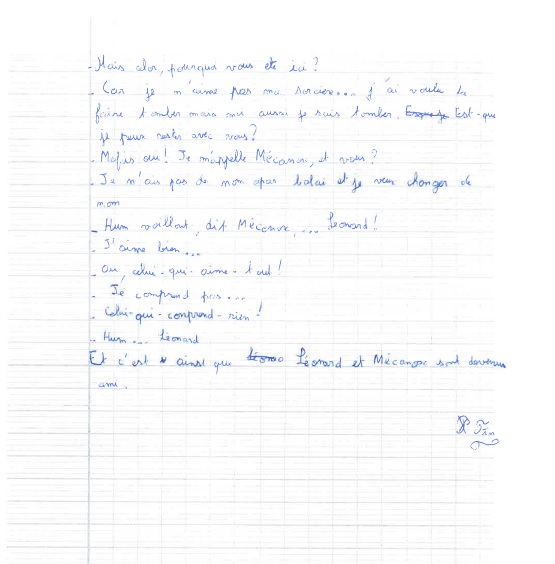 - Mais alor, pourquoi vous ete ici ?
- Car je n'aime pas ma sorciere... j'ai voulu la
faire tomber mais moi aussi je suis tomber. Est-que
je peux rester avec vous ?
- Mais oui ! Je m'appelle Mécanox, et vous ?
- Je n'ai pas de nom apar balai et je veux changer de
nom
- Hum voillont, dit Mécanox, ... Léonard !
- J'aime bien...
- Ou, celui-qui-aime-tout !
- Je comprend pas...
- Celui-qui-comprend-rien !
- Hum... Léonard
Et c'est ainsi que Léonard et Mécanox sont devenus
ami.
Fin